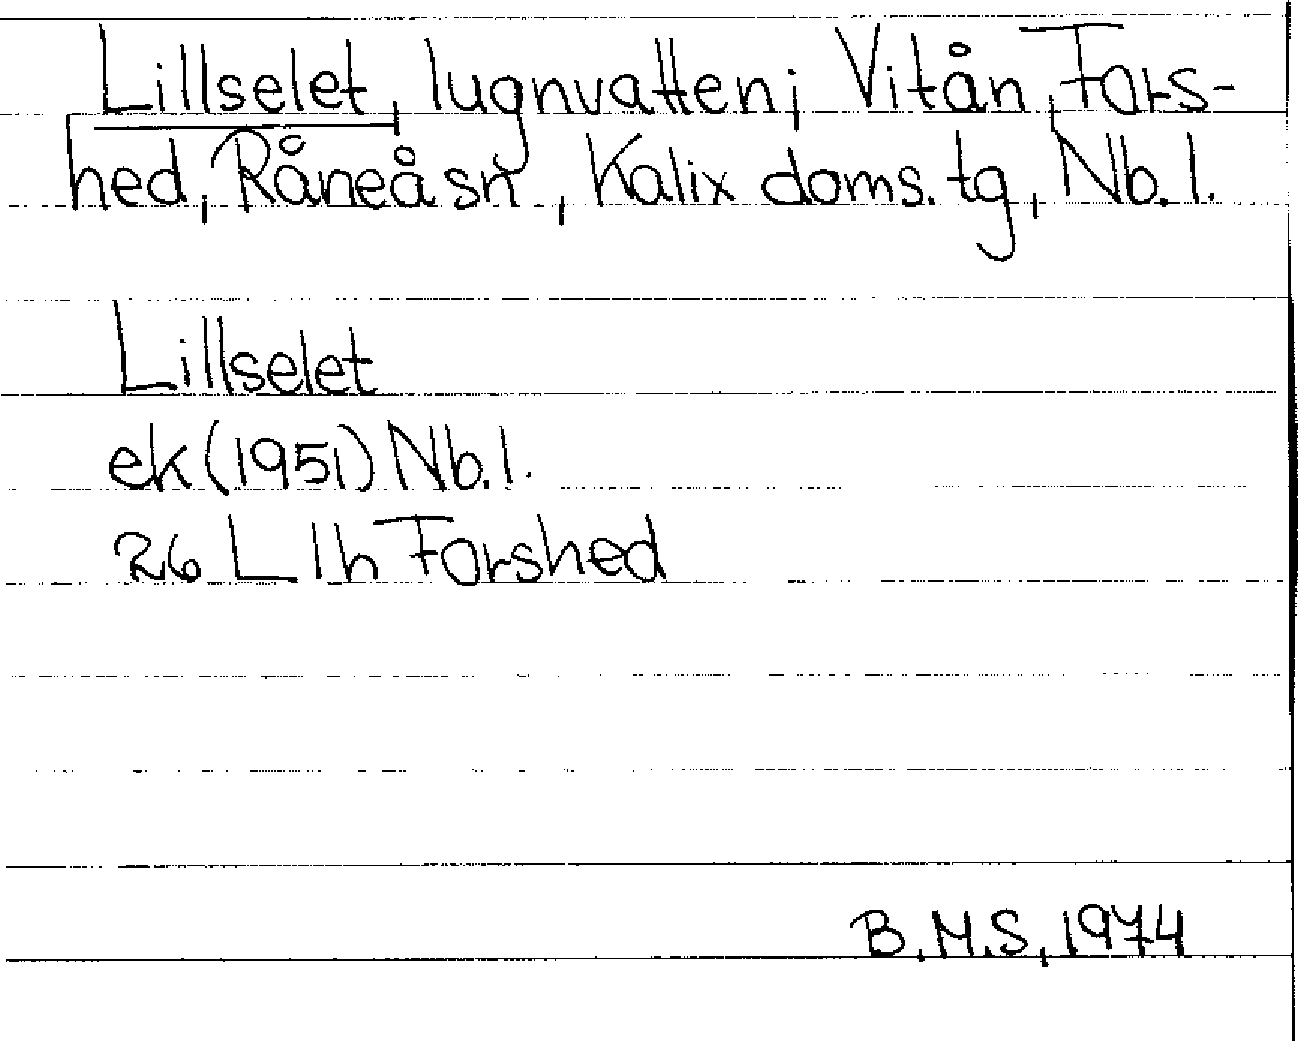 Lillselet, lugnvatten i Vitån, Fors-
hed, Råneå sn, Kalix doms. tg, Nb. l.
Lillselet
ek (1951) Nb. l.
26 L 1h Forshed
B.M.S, 1974